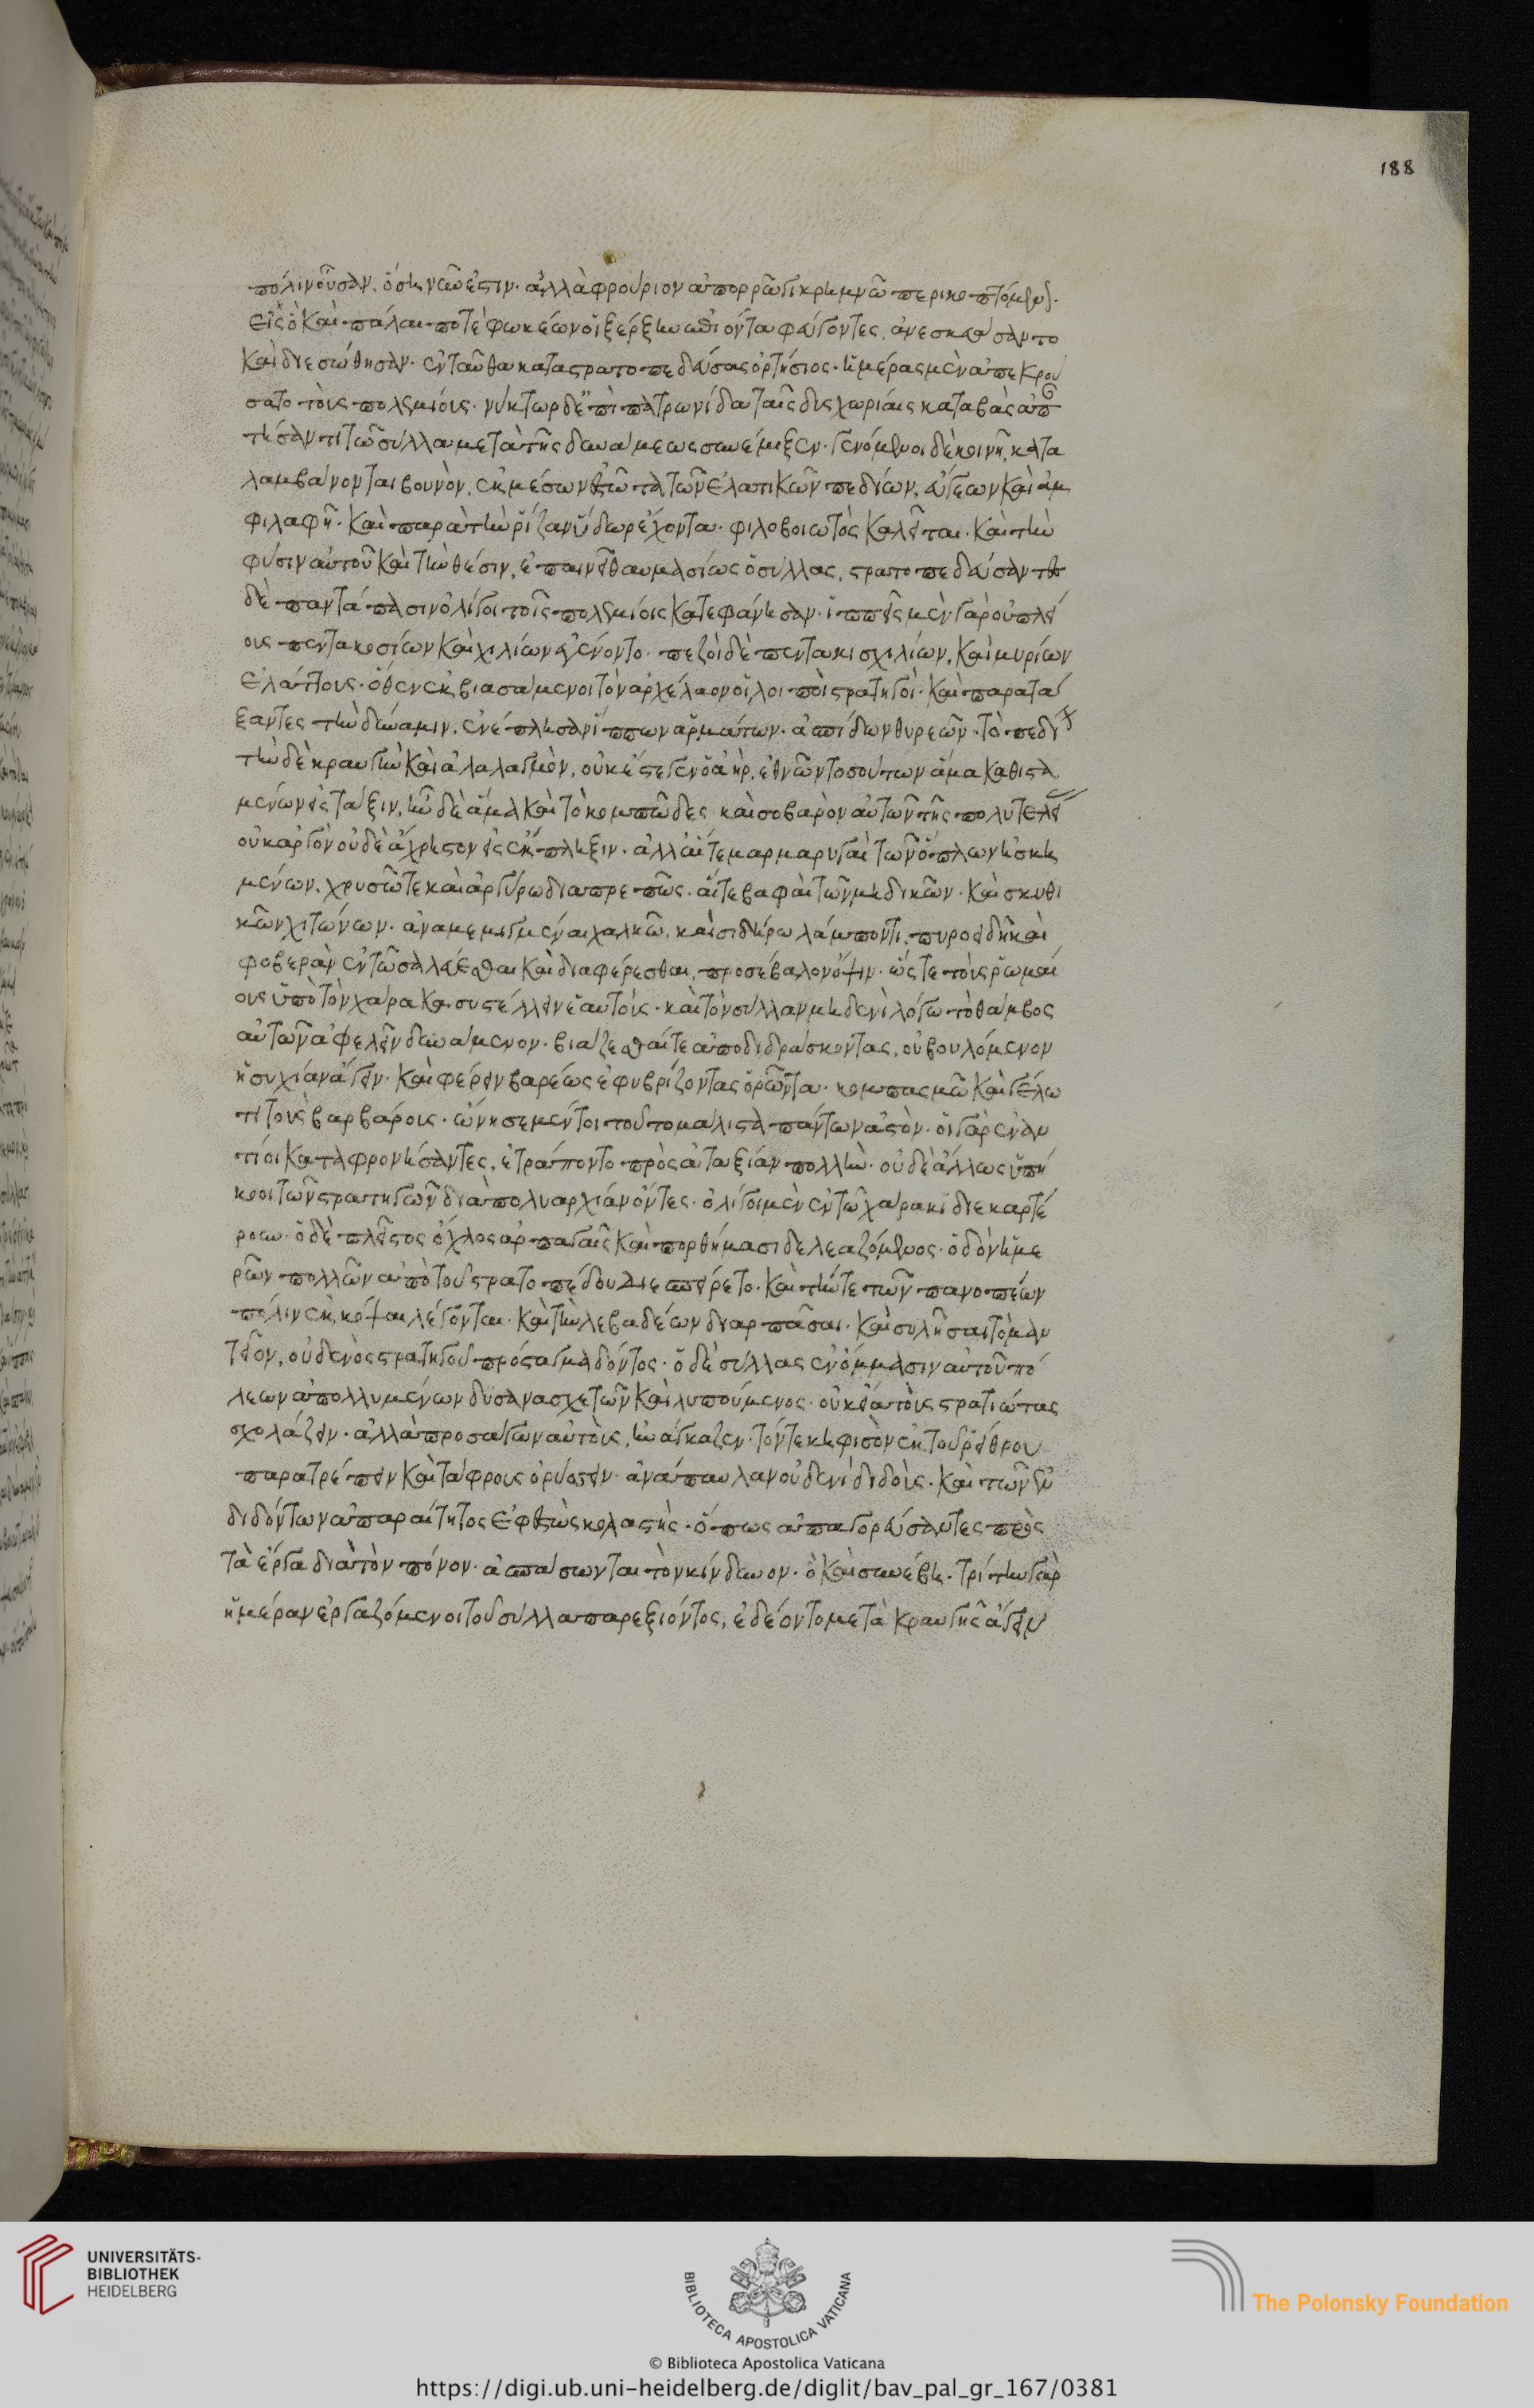 188
πόλιν οὖσαν. ὅση νῦν ἐστιν. ἀλλὰ φρούριον ἀπορρῶγι κρημνῶ περικοπτόμενον.
εἰς ὃ καὶ πάλαι ποτὲ φωκέων οἱ ξέρξην ἐπιόντα φεύγοντες, ἀνεσκευάσαντο
καὶ διεσώθησαν. ἐνταῦθα καταστρατοπεδεύσας ὁρτήσιος. ἡμέρας μὲν ἀπεκρού
σατο τοὺς πολεμίους. νύκτωρ δ' ἐπὶ πατρωνίδα ταῖς δυσχωρίαις καταβὰς ἀπ
τήσαντι τῶ σύλλα μετὰ τῆς δυνάμεως συνέμιξεν. γενόμενοι δὲ κοινῆ, κατα
λαμβάνονται βουνὸν, ἐκ μέσων ἑστῶτα τῶν ἐλατικῶν πεδίων, εὔγεων καὶ ἀμ
φιλαφῆ. καὶ παρὰ τὴν ῥίζαν ὕδωρ ἔχοντα. φιλοβοιωτὸς καλεῖται. καὶ τὴν
φύσιν αὐτοῦ καὶ τὴν θέσιν, ἐπαινεῖ θαυμασίως ὁ σύλλας, στρατοπεδεύσαντες
δὲ παντάπασιν ὀλίγοι τοῖς πολεμίοις κατεφάνησαν. ἱππεῖς μὲν γὰρ οὐ πλεί
ους πεντακοσίων καὶ χιλίων ἐγένοντο. πεζοὶ δὲ πεντακισχιλίων, καὶ μυρίων
ἐλάττους. ὅθεν ἐκβιασάμενοι τὸν ἀρχέλαον οἱ λοιποὶ στρατηγοὶ. καὶ παρατά
ξαντες τὴν δύναμιν, ἐνέπλησαν ἵππων ἁρμάτων. ἀσπίδων θυρεῶν. τὸ πεδίον
τὴν δὲ κραυγὴν καὶ ἀλαλαγμὸν, οὐκ ἔστεγεν ὁ ἀὴρ, ἐθνῶν τοσούτων ἅμα καθιστα
μένων εἰς τάξιν, ἦν δὲ ἅμα καὶ τὸ κομπῶδες. καὶ σοβαρὸν αὐτῶν τῆς πολυτελεί
οὐκ ἀργὸν οὐδὲ ἄχρηστον εἰς ἔκπληξιν. ἀλλ' αἵ τε μαρμαρυγαὶ τῶν ὅπλων ἠσκη
μένων, χρυσῶ τε καὶ ἀργύρω διαπρεπῶς. αἵ τε βαφαὶ τῶν μηδικῶν. καὶ σκυθι
κῶν χιτώνων. ἀναμεμιγμέναι χαλκῶ, καὶ σιδήρω λάμποντι, πυροειδῆ καὶ
φοβερὰν ἐν τῶ σαλεύεσθαι καὶ διαφέρεσθαι, προσέβαλον ὄψιν. ὥστε τοὺς ῥωμαί
ους ὑπὸ τὸν χάρακα συστέλλειν ἑαυτούς. καὶ τὸν σύλλαν μηδενὶ λόγω τὸ θάμβος
αὐτῶν ἀφελεῖν δυνάμενον. βιάζεσθαί τε ἀποδιδράσκοντας, οὐ βουλόμενον
ἡσυχίαν ἄγειν. καὶ φέρειν βαρέως ἐφυβρίζοντας ὁρῶντα. κομπασμῶ καὶ γέλω
τι τοὺς βαρβάρους. ὤνησε μέντοι τοῦτο μάλιστα πάντων αὐτὸν. οἱ γὰρ ἐναν
τίοι καταφρονήσαντες, ἐτράποντο πρὸς ἀταξίαν πολλὴν. οὐδὲ ἄλλως ὑπή
κοοι τῶν στρατηγῶν διὰ πολυαρχίαν ὄντες. ὀλίγοι μὲν ἐν τῶ χάρακι διεκαρτέ
ρουν. ὁ δὲ πλεῖστος ὄχλος ἁρπαγαῖς καὶ πορθήμασι δελεαζόμενος. ὁδὸν ἡμε
ρῶν πολλῶν ἀπὸ τοῦ στρατοπέδου διεσπείρετο. καὶ τήν τε τῶν πανοπέων
πόλιν ἐκκόψαι λέγονται. καὶ τὴν λεβαδέων διαρπᾶσαι. καὶ συλῆσαι τὸ μαν
τεῖον, οὐδενὸς στρατηγοῦ πρόσταγμα δόντος. ὁ δὲ σύλλας ἐν ὄμμασιν αὐτοῦ πό
λεων ἀπολλυμένων δυσανασχετῶν καὶ λυπούμενος. οὐκ εἴα τοὺς στρατιώτας
σχολάζειν. ἀλλὰ προσαγων αὐτοὺς, ἠνάγκαζεν. τόν τε κηφισὸν ἐκ τοῦ ῥείθρου
παρατρέπειν καὶ τάφρους ὀρύσσειν. ἀνάπαυλαν οὐδενὶ διδοὺς. καὶ τῶν ἐν
διδόντων ἀπαραίτητος ἐφεστὼς κολαστὴς. ὅπως ἀπαγορεύσαντες πρὸς
τὰ ἔργα διὰ τὸν πόνον. ἀσπάσωνται τὸν κίνδυνον. ὃ καὶ συνέβη. τρίτην γὰρ
ἡμέραν ἐργαζόμενοι τοῦ σύλλα παρεξιόντος, ἐδέοντο μετὰ κραυγῆς ἄγειν
UNIVERSITÄTS-
BIBLIOTHEK
HEIDELBERG
BIBLIOTECA APOSTOLICA VATICANA
The Polonsky Foundation
© Biblioteca Apostolica Vaticana
https://digi.ub.uni-heidelberg.de/diglit/bav_pal_gr_167/0381